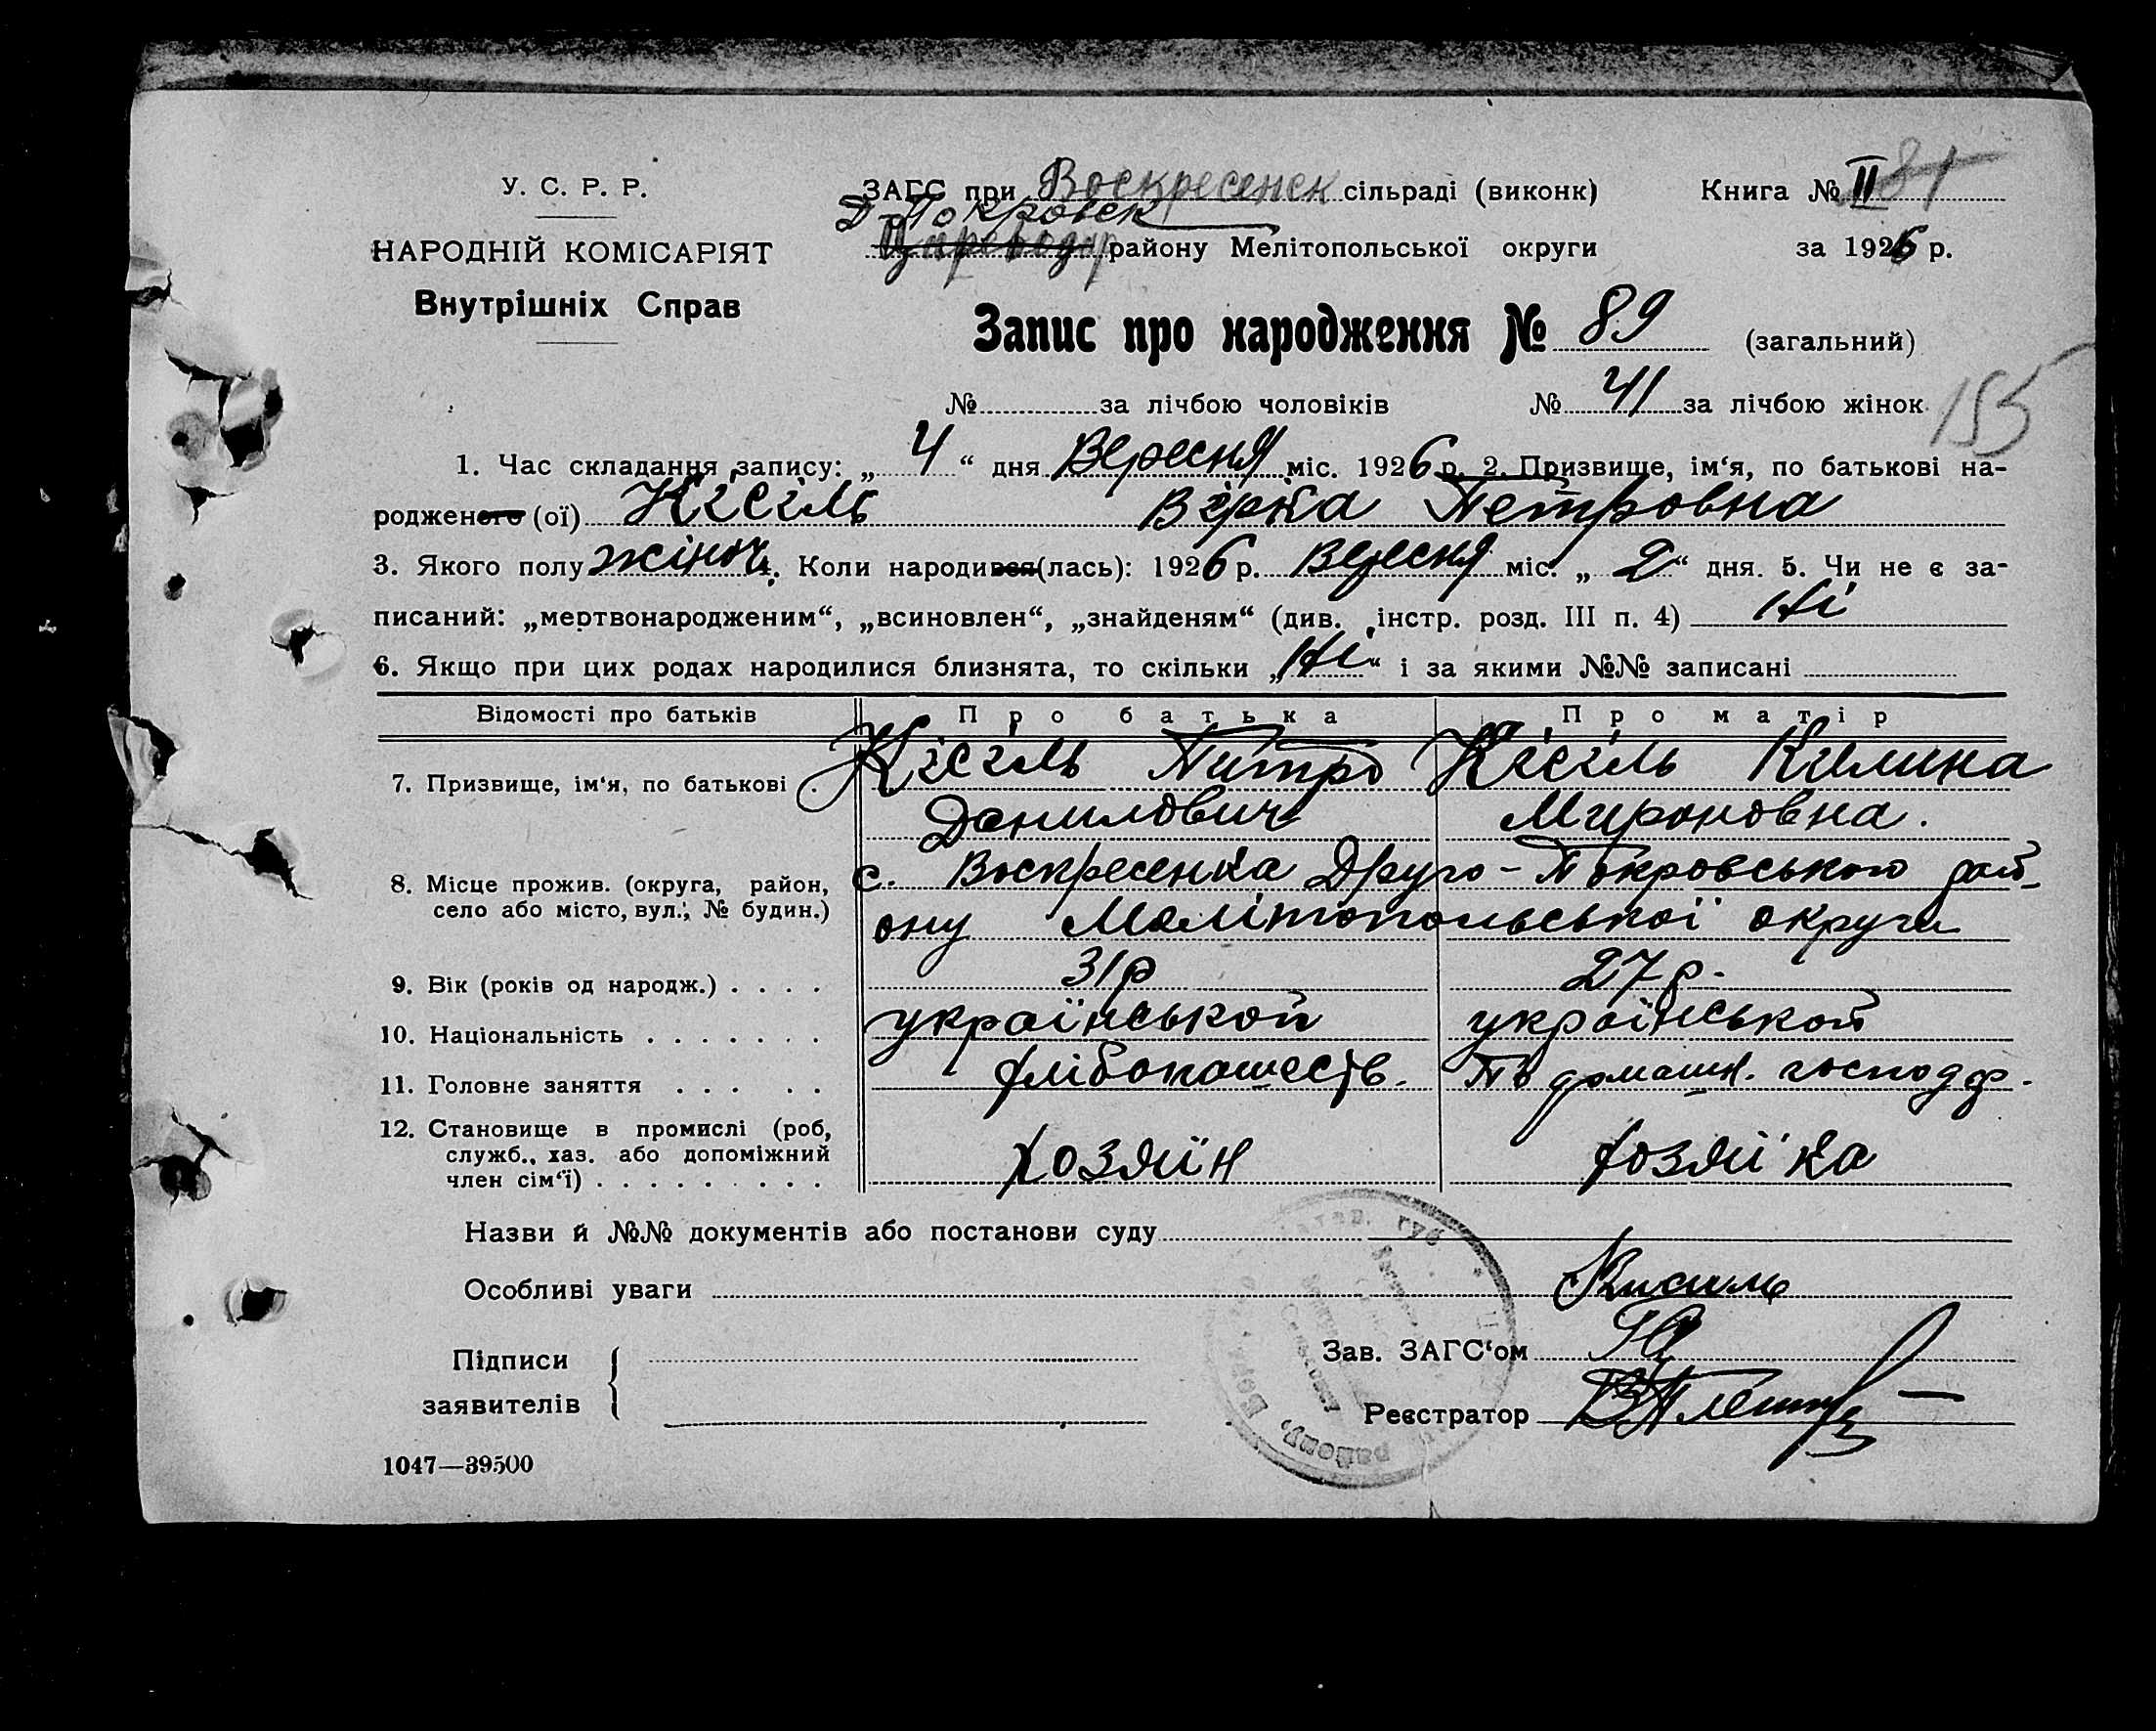 У. С. Р. Р.
НАРОДНІЙ КОМІСАРІЯТ
Внутрішніх Справ
ЗАГС при Воскресенск сільраді (виконк)
Д-Покровск
Цареводар району Мелітопольської округи
Книга № II 81
за 1926 р.
Запис про народження № 89 (загальний)
№ за лічбою чоловіків № 41 за лічбою жінок
155
1. Час складання запису: „ 4 “ дня Вересня міс. 1926 р. 2. Призвище, ім‘я, по батькові на-
родженого (ої) Кісіль Вірка Петровна
3. Якого полу жіноч. 4. Коли народився(лась): 1926 р. Вересня міс. „ 2 “ дня. 5. Чи не є за-
писаний: „мертвонародженим“, „всиновлен“, „знайденям“ (див. інстр. розд. III п. 4) Ні
6. Якщо при цих родах народилися близнята, то скільки „ Ні “ і за якими №№ записані
Відомості про батьків Про батька Про матір
7. Призвище, ім‘я, по батькові . Кісіль Питро Кісіль Килина
Данилович Мироновна.
8. Місце прожив. (округа, район, с. Воскресенка Друго-Покровського рай-
село або місто, вул., № будин.) ону Мелітопольської округи
9. Вік (років од народж.) . . . . 31р 27р.
10. Національність . . . . . . . українськой українськой
11. Головне заняття . . . . . хлібопашеств. По домашн. господр.
12. Становище в промислі (роб,
служб., хаз. або допоміжний хозяїн хозяїка
член сім‘ї) . . . . . . . . .
Назви й №№ документів або постанови суду
Особливі уваги Кисиль
Підписи
заявителів
Зав. ЗАГС‘ом
Реєстратор
1047—39500